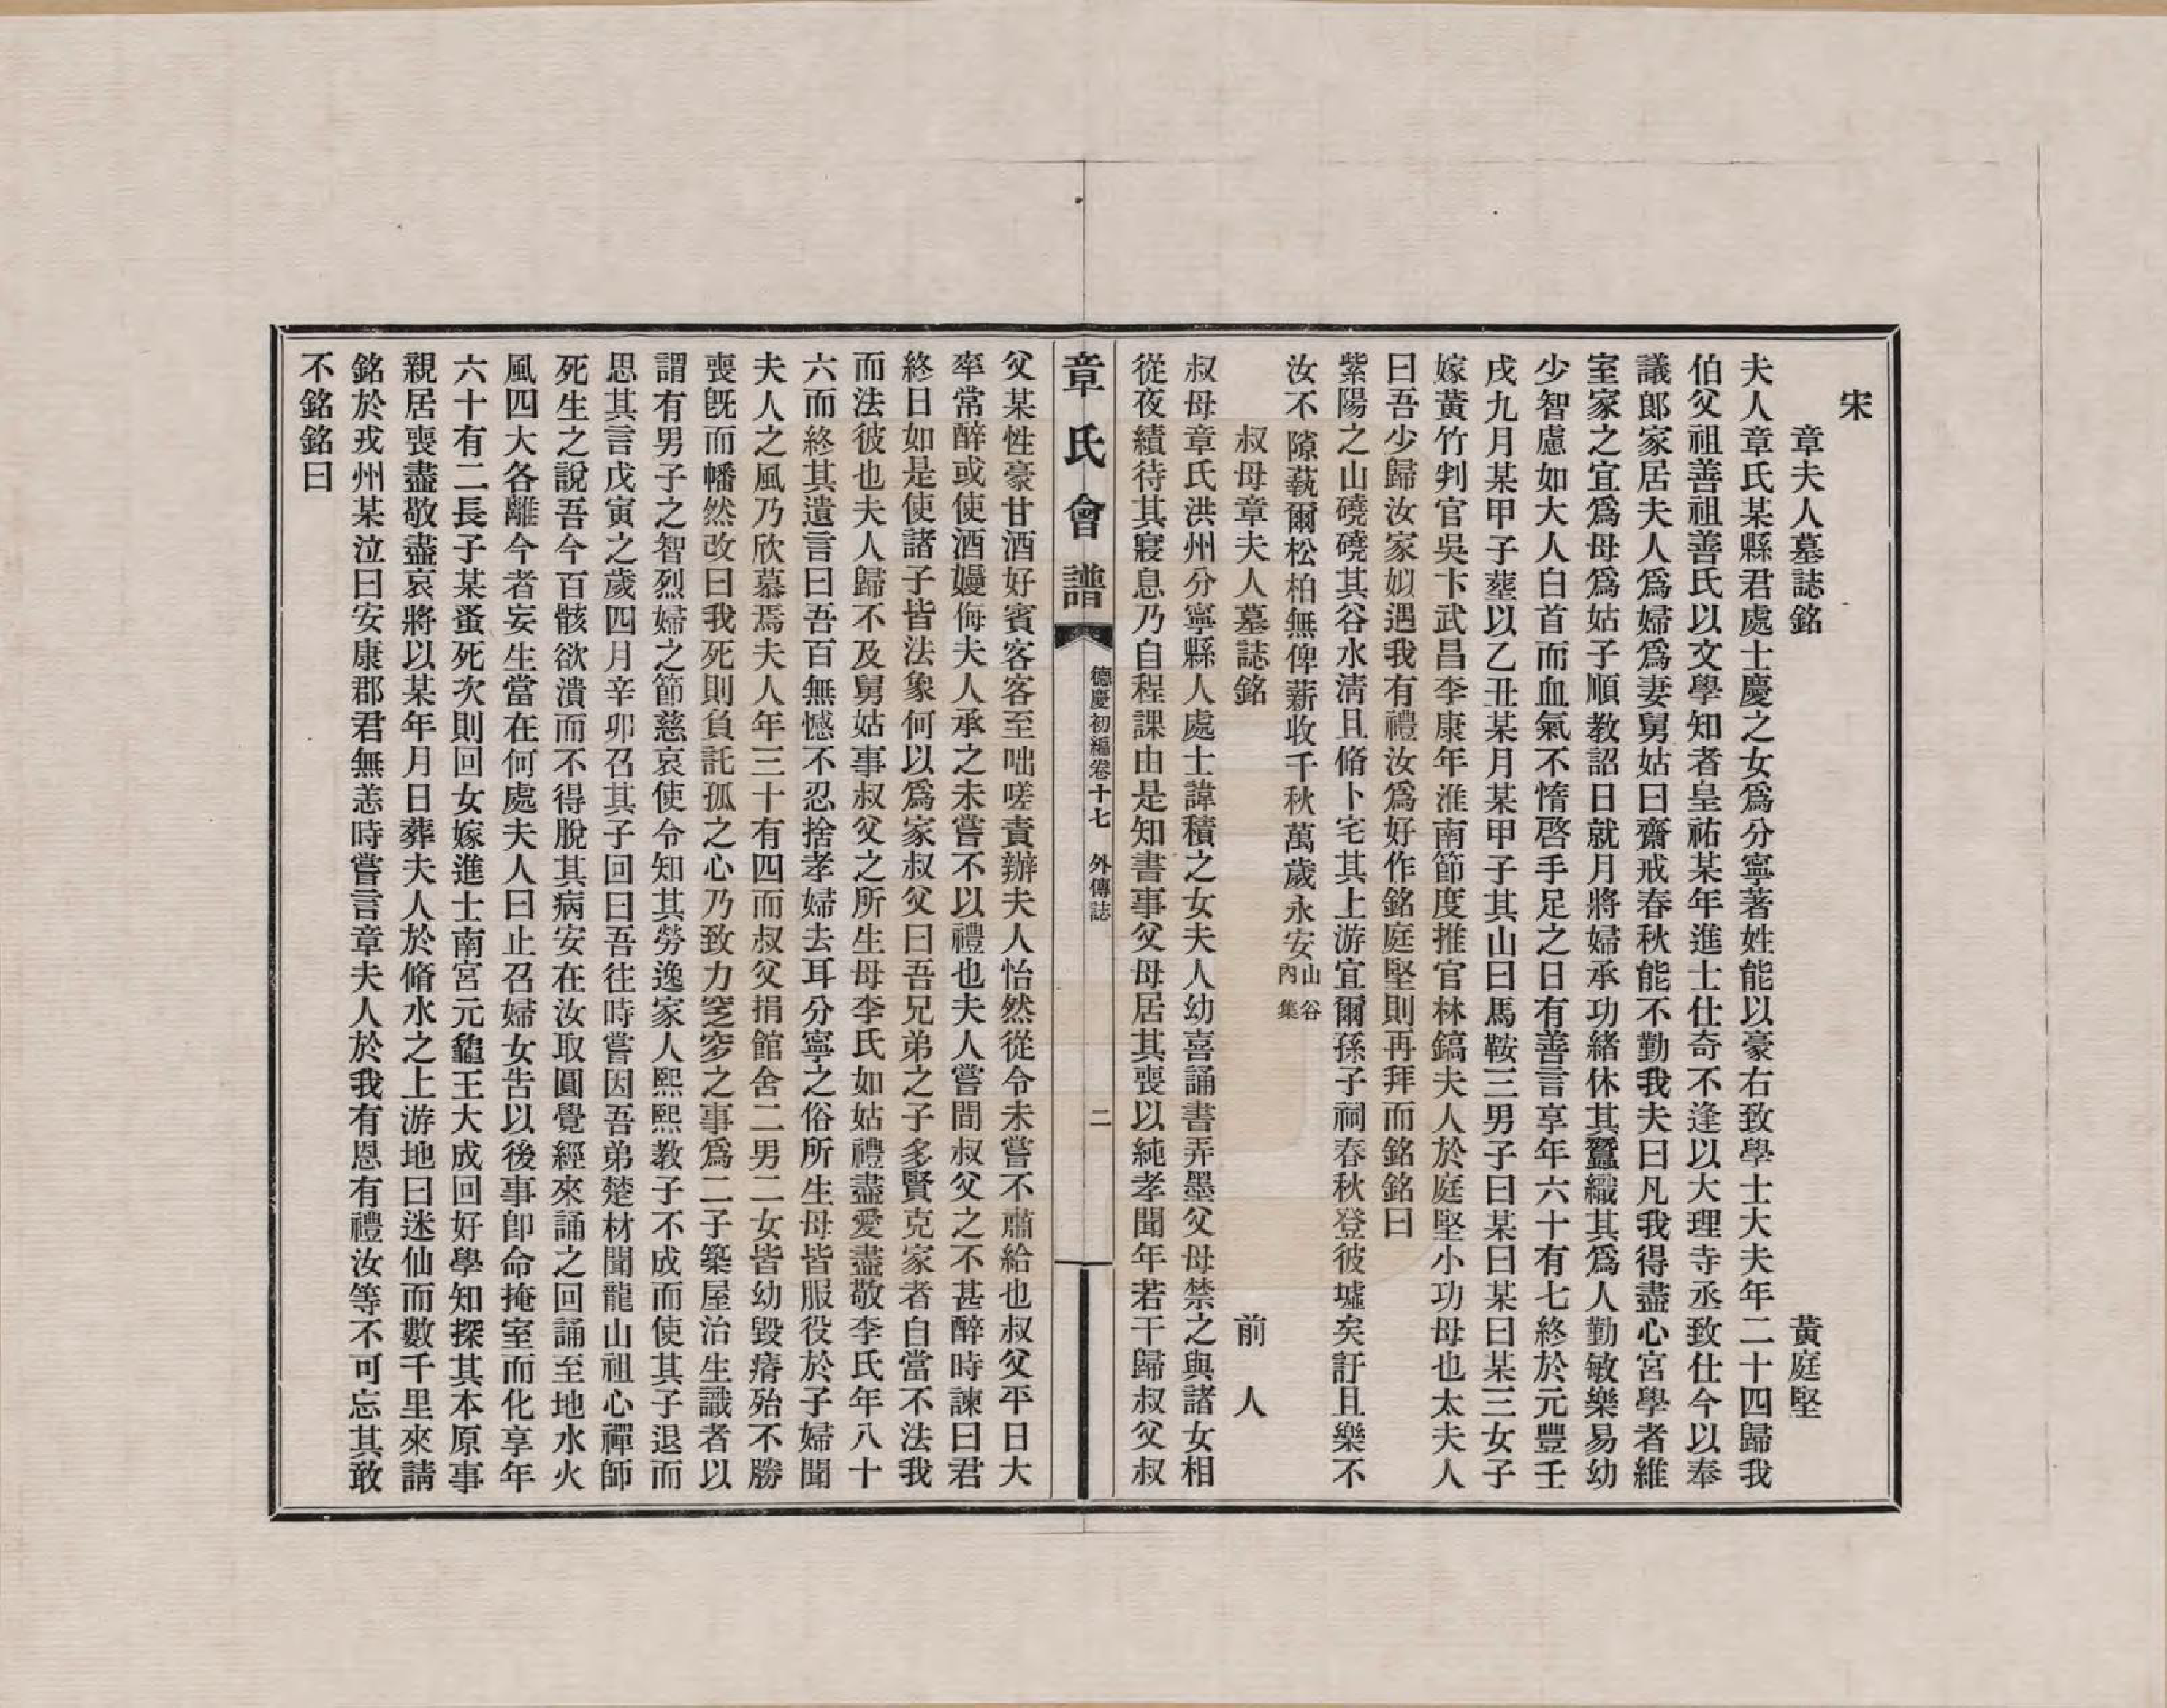 宋
章夫人墓誌銘　黃庭堅
夫人章氏某縣君處士慶之女爲分寧著姓能以豪右致學士大夫年二十四歸我
伯父祖善祖善氏以文學知者皇祐某年進士仕奇不逢以大理寺丞致仕今以奉
議郎家居夫人爲婦爲妻舅姑曰齋戒春秋能不勤我夫曰凡我得盡心宮學者維
室家之宜爲母爲姑子順教詔日就月將婦承功緒休其蠶織其爲人勤敏樂易幼
少智慮如大人白首而血氣不惰啓手足之日有善言享年六十有七終於元豐壬
戌九月某甲子葬以乙丑某月某甲子其山曰馬鞍三男子曰某曰某曰某三女子
嫁黃竹判官吳卞武昌李康年淮南節度推官林鎬夫人於庭堅小功母也太夫人
曰吾少歸汝家姒遇我有禮汝爲好作銘庭堅則再拜而銘銘曰
紫陽之山磽磽其谷水淸且脩卜宅其上游宜爾孫子祠春秋登彼墟矣訏且樂不
汝不隙蓺爾松柏無俾薪收千秋萬歲永安山谷內集
叔母章夫人墓誌銘　前人
叔母章氏洪州分寧縣人處士諱積之女夫人幼喜誦書弄墨父母禁之與諸女相
從夜績待其寢息乃自程課由是知書事父母居其喪以純孝聞年若干歸叔父叔
章氏會譜　德慶初編卷十七　外傳誌　二
父某性豪甘酒好賓客客至咄嗟責辦夫人怡然從令未嘗不肅給也叔父平日大
率常醉或使酒嫚侮夫人承之未嘗不以禮也夫人嘗間叔父之不甚醉時諫曰君
終日如是使諸子皆法象何以爲家叔父曰吾兄弟之子多賢克家者自當不法我
而法彼也夫人歸不及舅姑事叔父之所生母李氏如姑禮盡愛盡敬李氏年八十
六而終其遺言曰吾百無憾不忍捨孝婦去耳分寧之俗所生母皆服役於子婦聞
夫人之風乃欣慕焉夫人年三十有四而叔父捐館舍二男二女皆幼毀瘠殆不勝
喪旣而幡然改曰我死則負託孤之心乃致力窆穸之事爲二子築屋治生識者以
謂有男子之智烈婦之節慈哀使令知其勞逸家人熙熙教子不成而使其子退而
思其言戊寅之歲四月辛卯召其子回曰吾往時嘗因吾弟楚材聞龍山祖心禪師
死生之說吾今百骸欲潰而不得脫其病安在汝取圓覺經來誦之回誦至地水火
風四大各離今者妄生當在何處夫人曰止召婦女告以後事卽命掩室而化享年
六十有二長子某蚤死次則回女嫁進士南宮元龜王大成回好學知探其本原事
親居喪盡敬盡哀將以某年月日葬夫人於脩水之上游地曰迷仙而數千里來請
銘於戎州某泣曰安康郡君無恙時嘗言章夫人於我有恩有禮汝等不可忘其敢
不銘銘曰